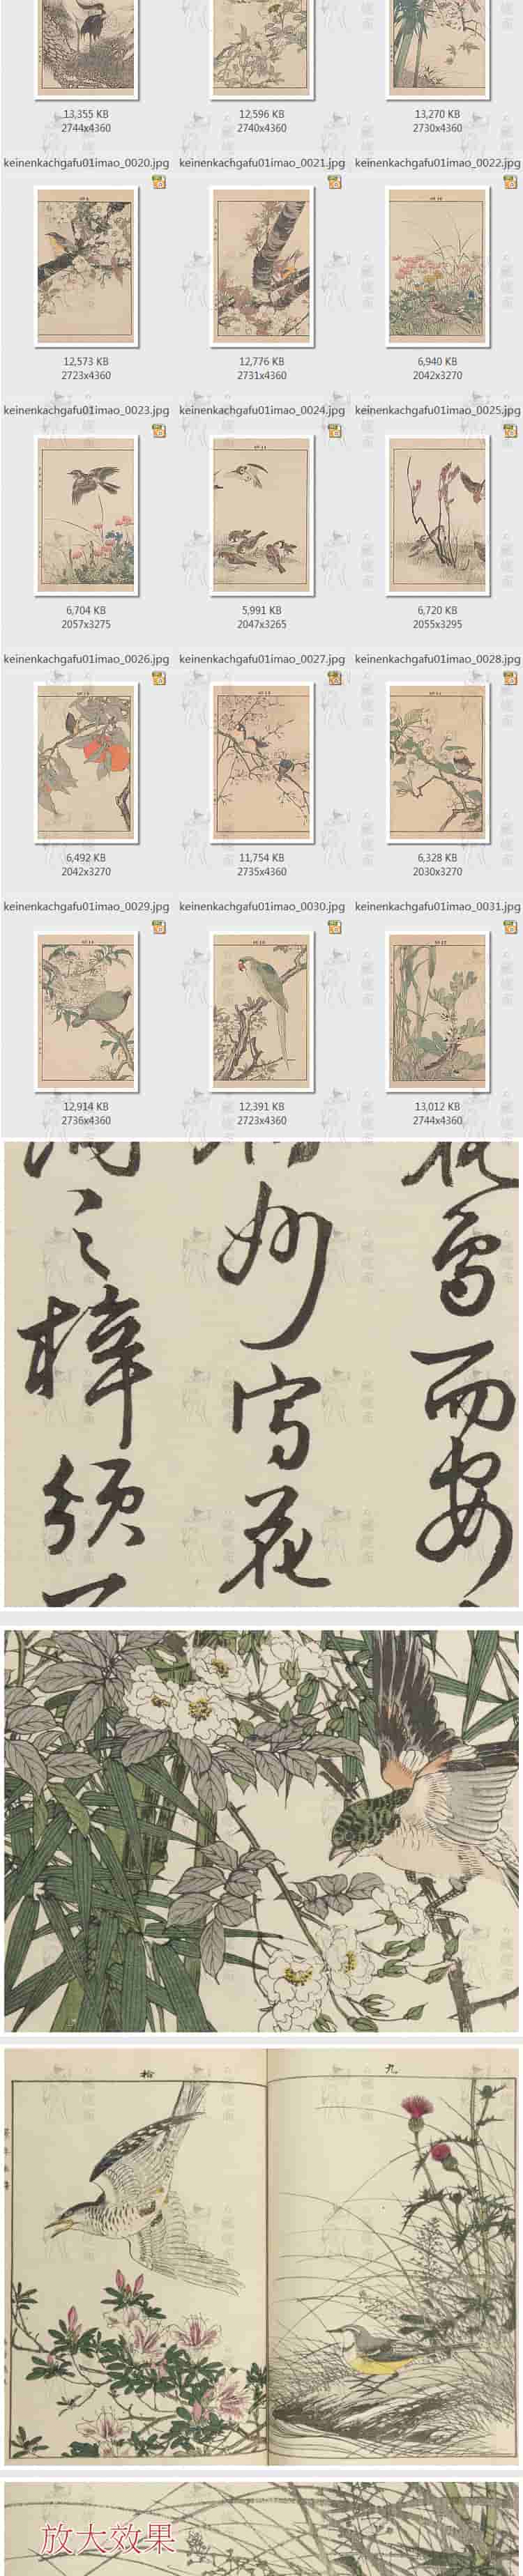 13,355 KB 12,596 KB 13,270 KB
2744x4360 2740x4360 2730x4360
keinenkachgafu01imao_0020.jpg keinenkachgafu01imao_0021.jpg keinenkachgafu01imao_0022.jpg
12,573 KB 12,776 KB 6,940 KB
2723x4360 2731x4360 2042x3270
keinenkachgafu01imao_0023.jpg keinenkachgafu01imao_0024.jpg keinenkachgafu01imao_0025.jpg
6,704 KB 5,991 KB 6,720 KB
2057x3275 2047x3265 2055x3295
keinenkachgafu01imao_0026.jpg keinenkachgafu01imao_0027.jpg keinenkachgafu01imao_0028.jpg
6,492 KB 11,754 KB 6,328 KB
2042x3270 2735x4360 2030x3270
keinenkachgafu01imao_0029.jpg keinenkachgafu01imao_0030.jpg keinenkachgafu01imao_0031.jpg
12,914 KB 12,391 KB 13,012 KB
2736x4360 2723x4360 2744x4360
而安
妙写花
之梓
九
拾
放大效果